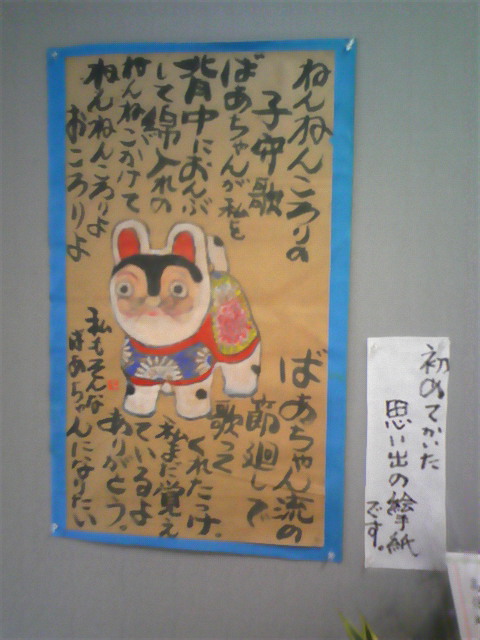 ねんねんころりの
子守歌
ばあちゃんが私を
背中におんぶ
して綿入れの
ねんねこかけて
ねんねんころりよ
おころりよ
ばあちゃん流の
節廻しで
歌って
くれたっけ。
私まだ覚え
ているよ
ありがとう。
私もそんな
ばあちゃんになりたい
初めてかいた
思い出の絵手紙
です。